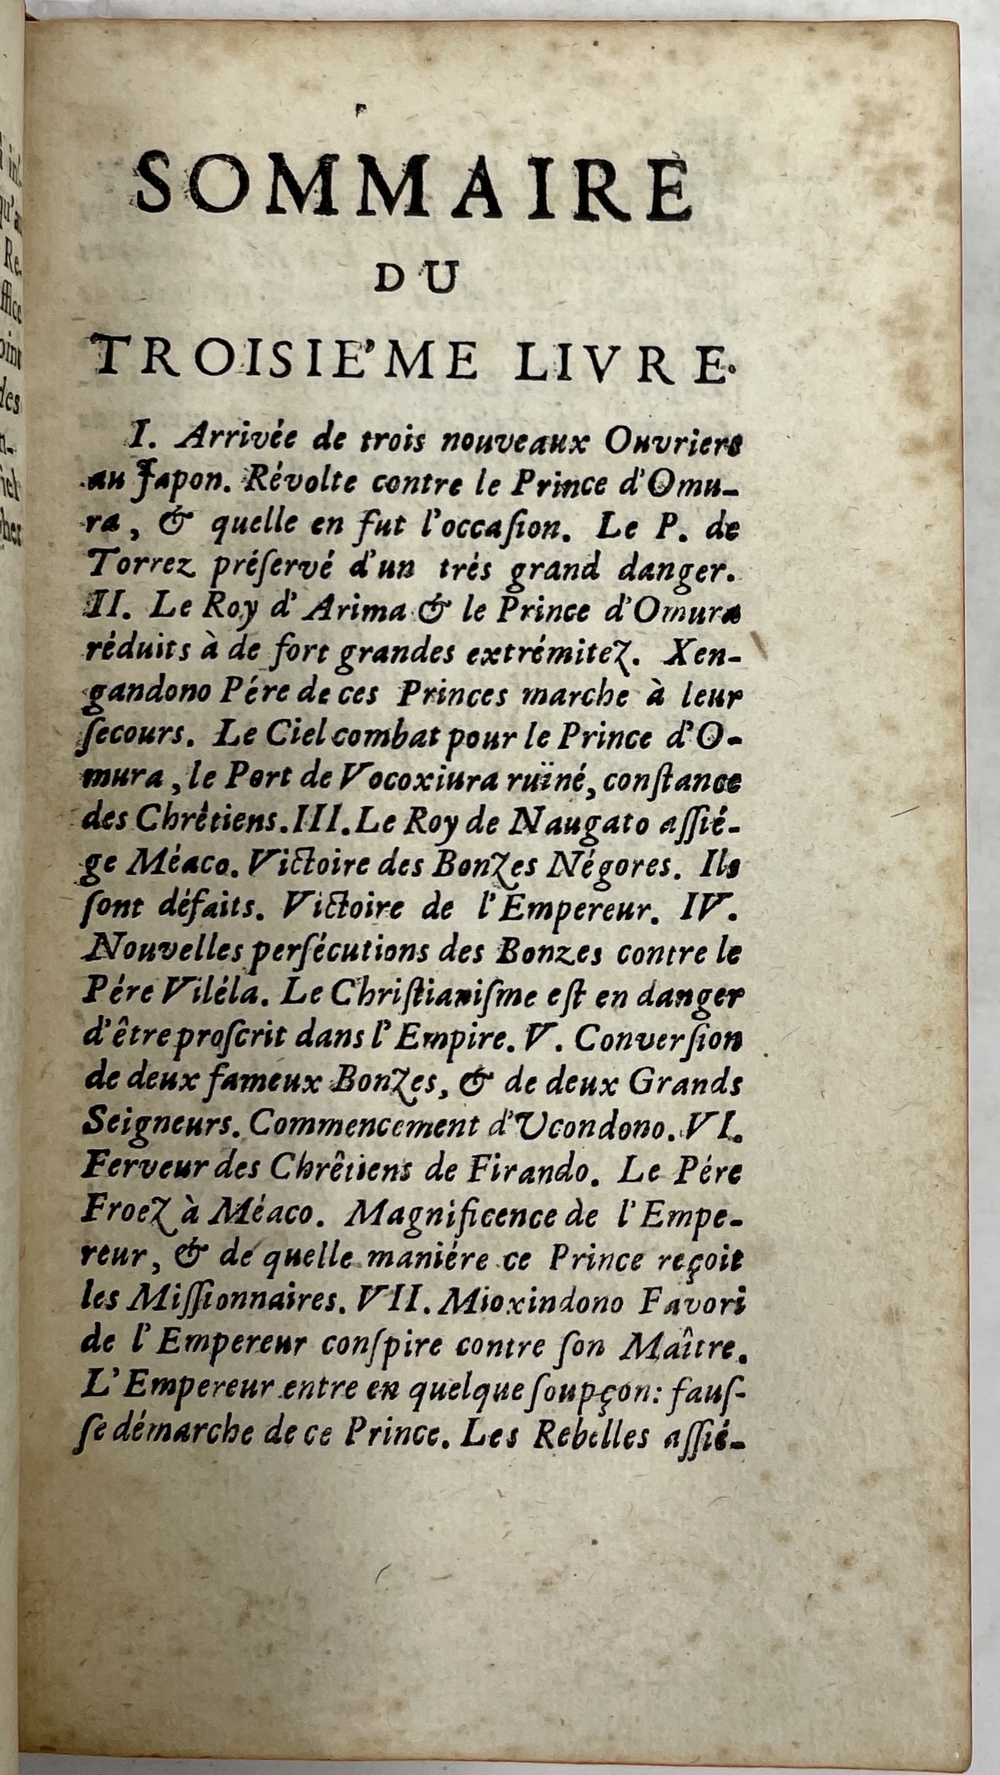 SOMMAIRE
DU
TROISIE'ME LIVRE.
I. Arrivée de trois nouveaux Ouvriers
au Japon. Révolte contre le Prince d'Omu-
ra, & quelle en fut l'occaſion. Le P. de
Torrez préſervé d'un trés grand danger.
II. Le Roy d'Arima & le Prince d'Omura
réduits à de fort grandes extrémitez. Xen-
gandono Pére de ces Princes marche à leur
ſecours. Le Ciel combat pour le Prince d'O-
mura, le Port de Vocoxiura ruïné, conſtance
des Chrêtiens. III. Le Roy de Naugato aſſié-
ge Méaco. Victoire des Bonzes Négores. Ils
ſont défaits. Victoire de l'Empereur. IV.
Nouvelles perſécutions des Bonzes contre le
Pére Viléla. Le Chriſtianiſme eſt en danger
d'être proſcrit dans l'Empire. V. Converſion
de deux fameux Bonzes, & de deux Grands
Seigneurs. Commencement d'Ucondono. VI.
Ferveur des Chrêtiens de Firando. Le Pére
Froez à Méaco. Magnificence de l'Empe-
reur, & de quelle maniére ce Prince reçoit
les Miſſionnaires. VII. Mioxindono Favori
de l'Empereur conſpire contre ſon Maître.
L'Empereur entre en quelque ſoupçon: fauſ-
ſe démarche de ce Prince. Les Rebelles aſſié-